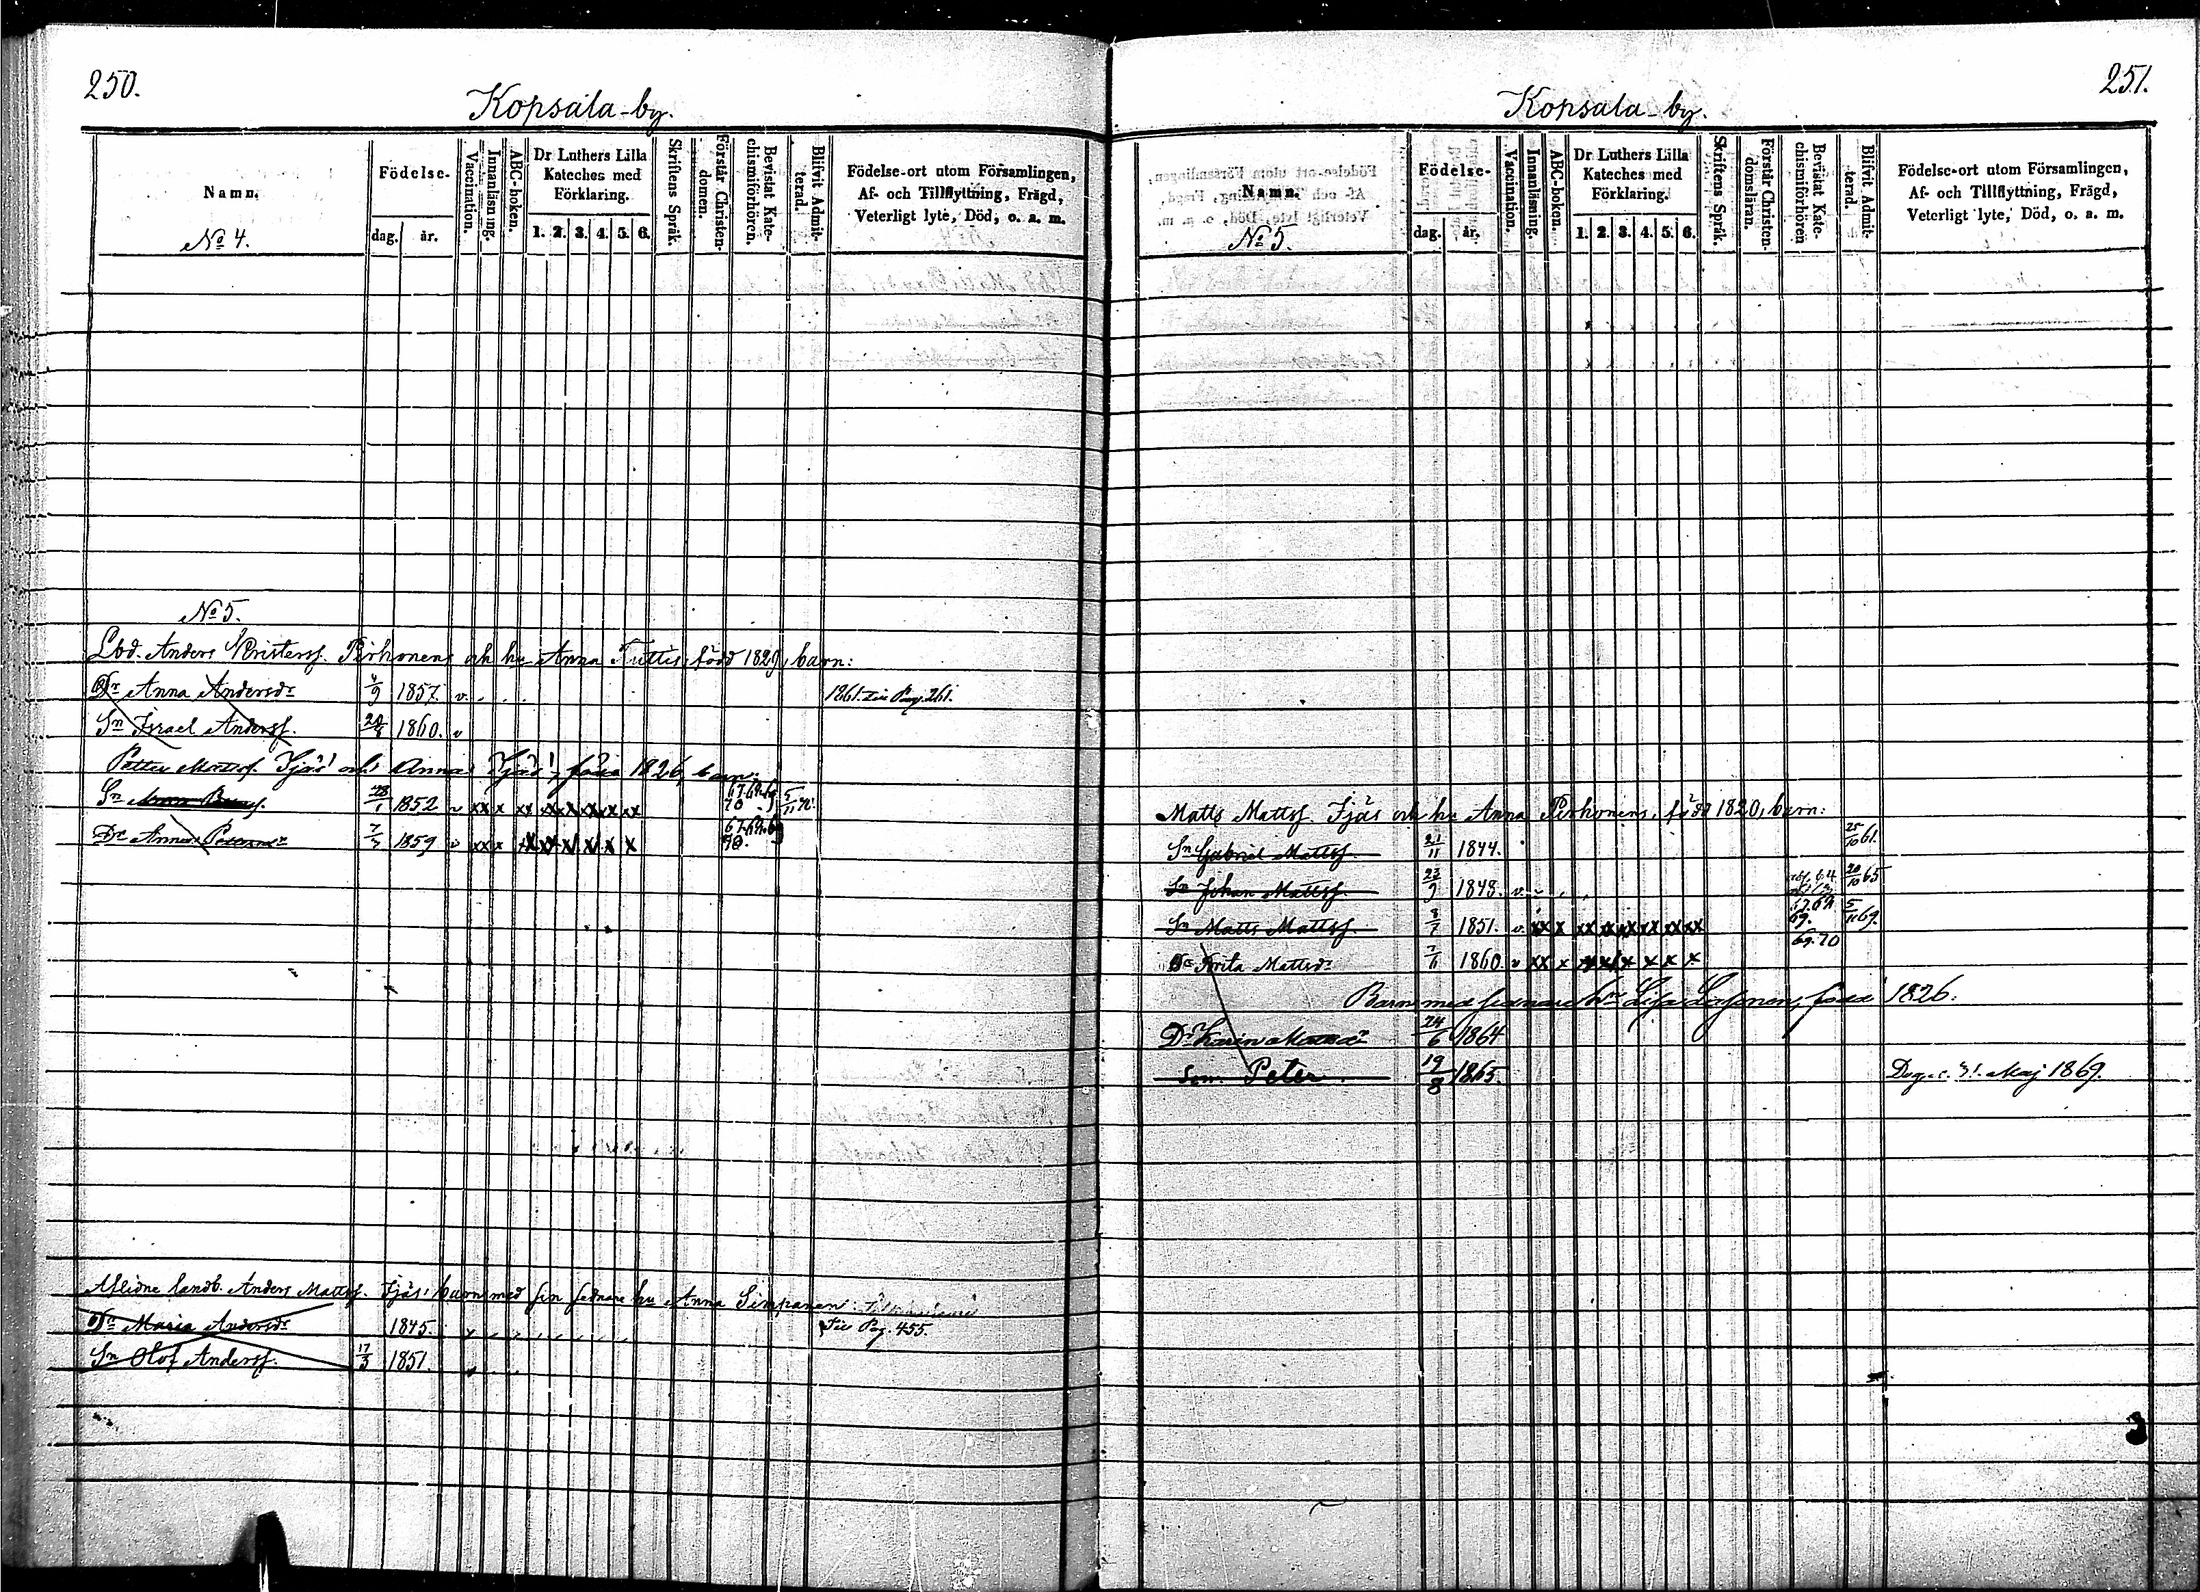 250.
Kopsala-by.
Namn.
No 4.
Födelse-
dag. år.
Vaccination.
Innanläsning.
ABC-boken.
Dr Luthers Lilla Kateches med Förklaring.
1. 2. 3. 4. 5. 6.
Skriftens Språk.
Förstår Christen-domen.
Bevistat Kate-chismiförhören.
Blifvit Admit-terad.
Födelse-ort utom Församlingen,
Af- och Tillflyttning, Frägd,
Veterligt lyte, Död, o. a. m.
No 5.
Lbd. Anders Kristerss. Pirhonens och hu Anna Tuttis, född 1829, barn:
Dr Anna Andersdr 4/9 1857. v. 1861. Pag. 261.
Sn Israel Anderss. 1860. v
Petter Mattss. Ijäs' och Anna Ijäs', född 1826, barn:
Sn 28/1 1852 v xx x xx x x x x x 67. 68. 69 70
Dr Anna 7/3 1859 v xx x x x x x x x 67. 68. 69 70.
Aflidne landb. Anders Mattss. Ijäs' barn med sin sednare hu Anna Simpanen
Dr Maria Andersdr 1845. Pag. 455.
Sn Olof Anderss. 17/3 1851.
251.
Kopsala-by.
Namn.
No 5.
Födelse-
dag. år.
Vaccination.
Innanläsning.
ABC-boken.
Dr Luthers Lilla Kateches med Förklaring.
1. 2. 3. 4. 5. 6.
Skriftens Språk.
Förstår Christen-domsläran.
Bevistat Kate-chismiförhören
Blifvit Admit-terad.
Födelse-ort utom Församlingen,
Af- och Tillflyttning, Frägd,
Veterligt lyte, Död, o. a. m.
Matts Mattss. Ijäs och hu Anna Pirhonens, född 1820, barn:
Sn Gabriel Mattss. 21/11 1844. 25/10 61.
Sn Johan Mattss. 23/9 1848. v. 64 20/10 65
Sn Matts Mattss. 8/7 1851. v. xx x xx xx xx xx xx xx 67. 68 69. 5/11 69.
Dr Brita Mattsdr 7/11 1860. v xx x x x x x x x 69. 70
Barn med sednare hu Lisa född 1826.
Dr Karin 24/6 1864
Son. Peter 19/8 1865. 31. Maj 1869.